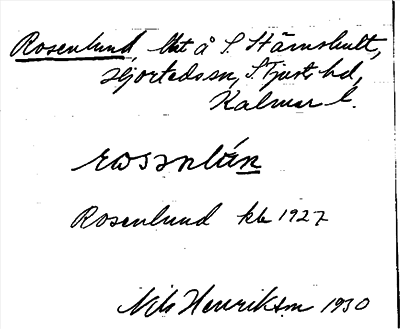 Rosenlund, lht å S. Stämshult,
Hjorteds sn, S. Tjust hd,
Kalmar l.
Rosenlund kb 1927
Nils Henriksson 1930